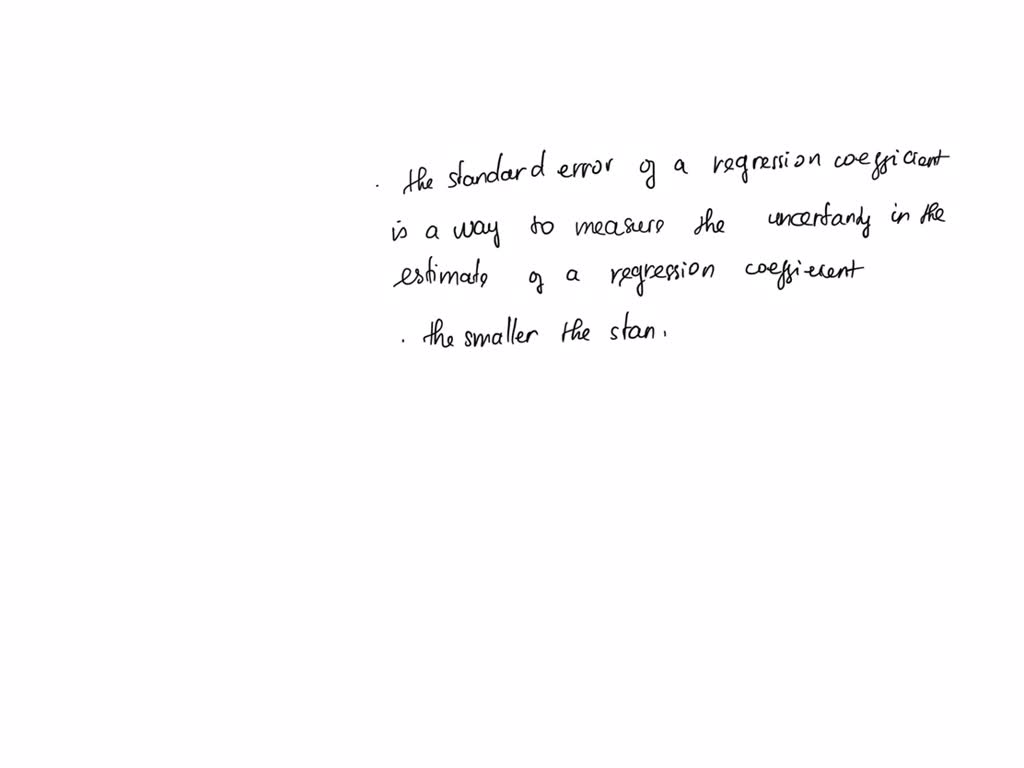 . the standard error of a regression coefficient
is a way to measure the uncertanty in the
estimate of a regression coefficient
. the smaller the stan.